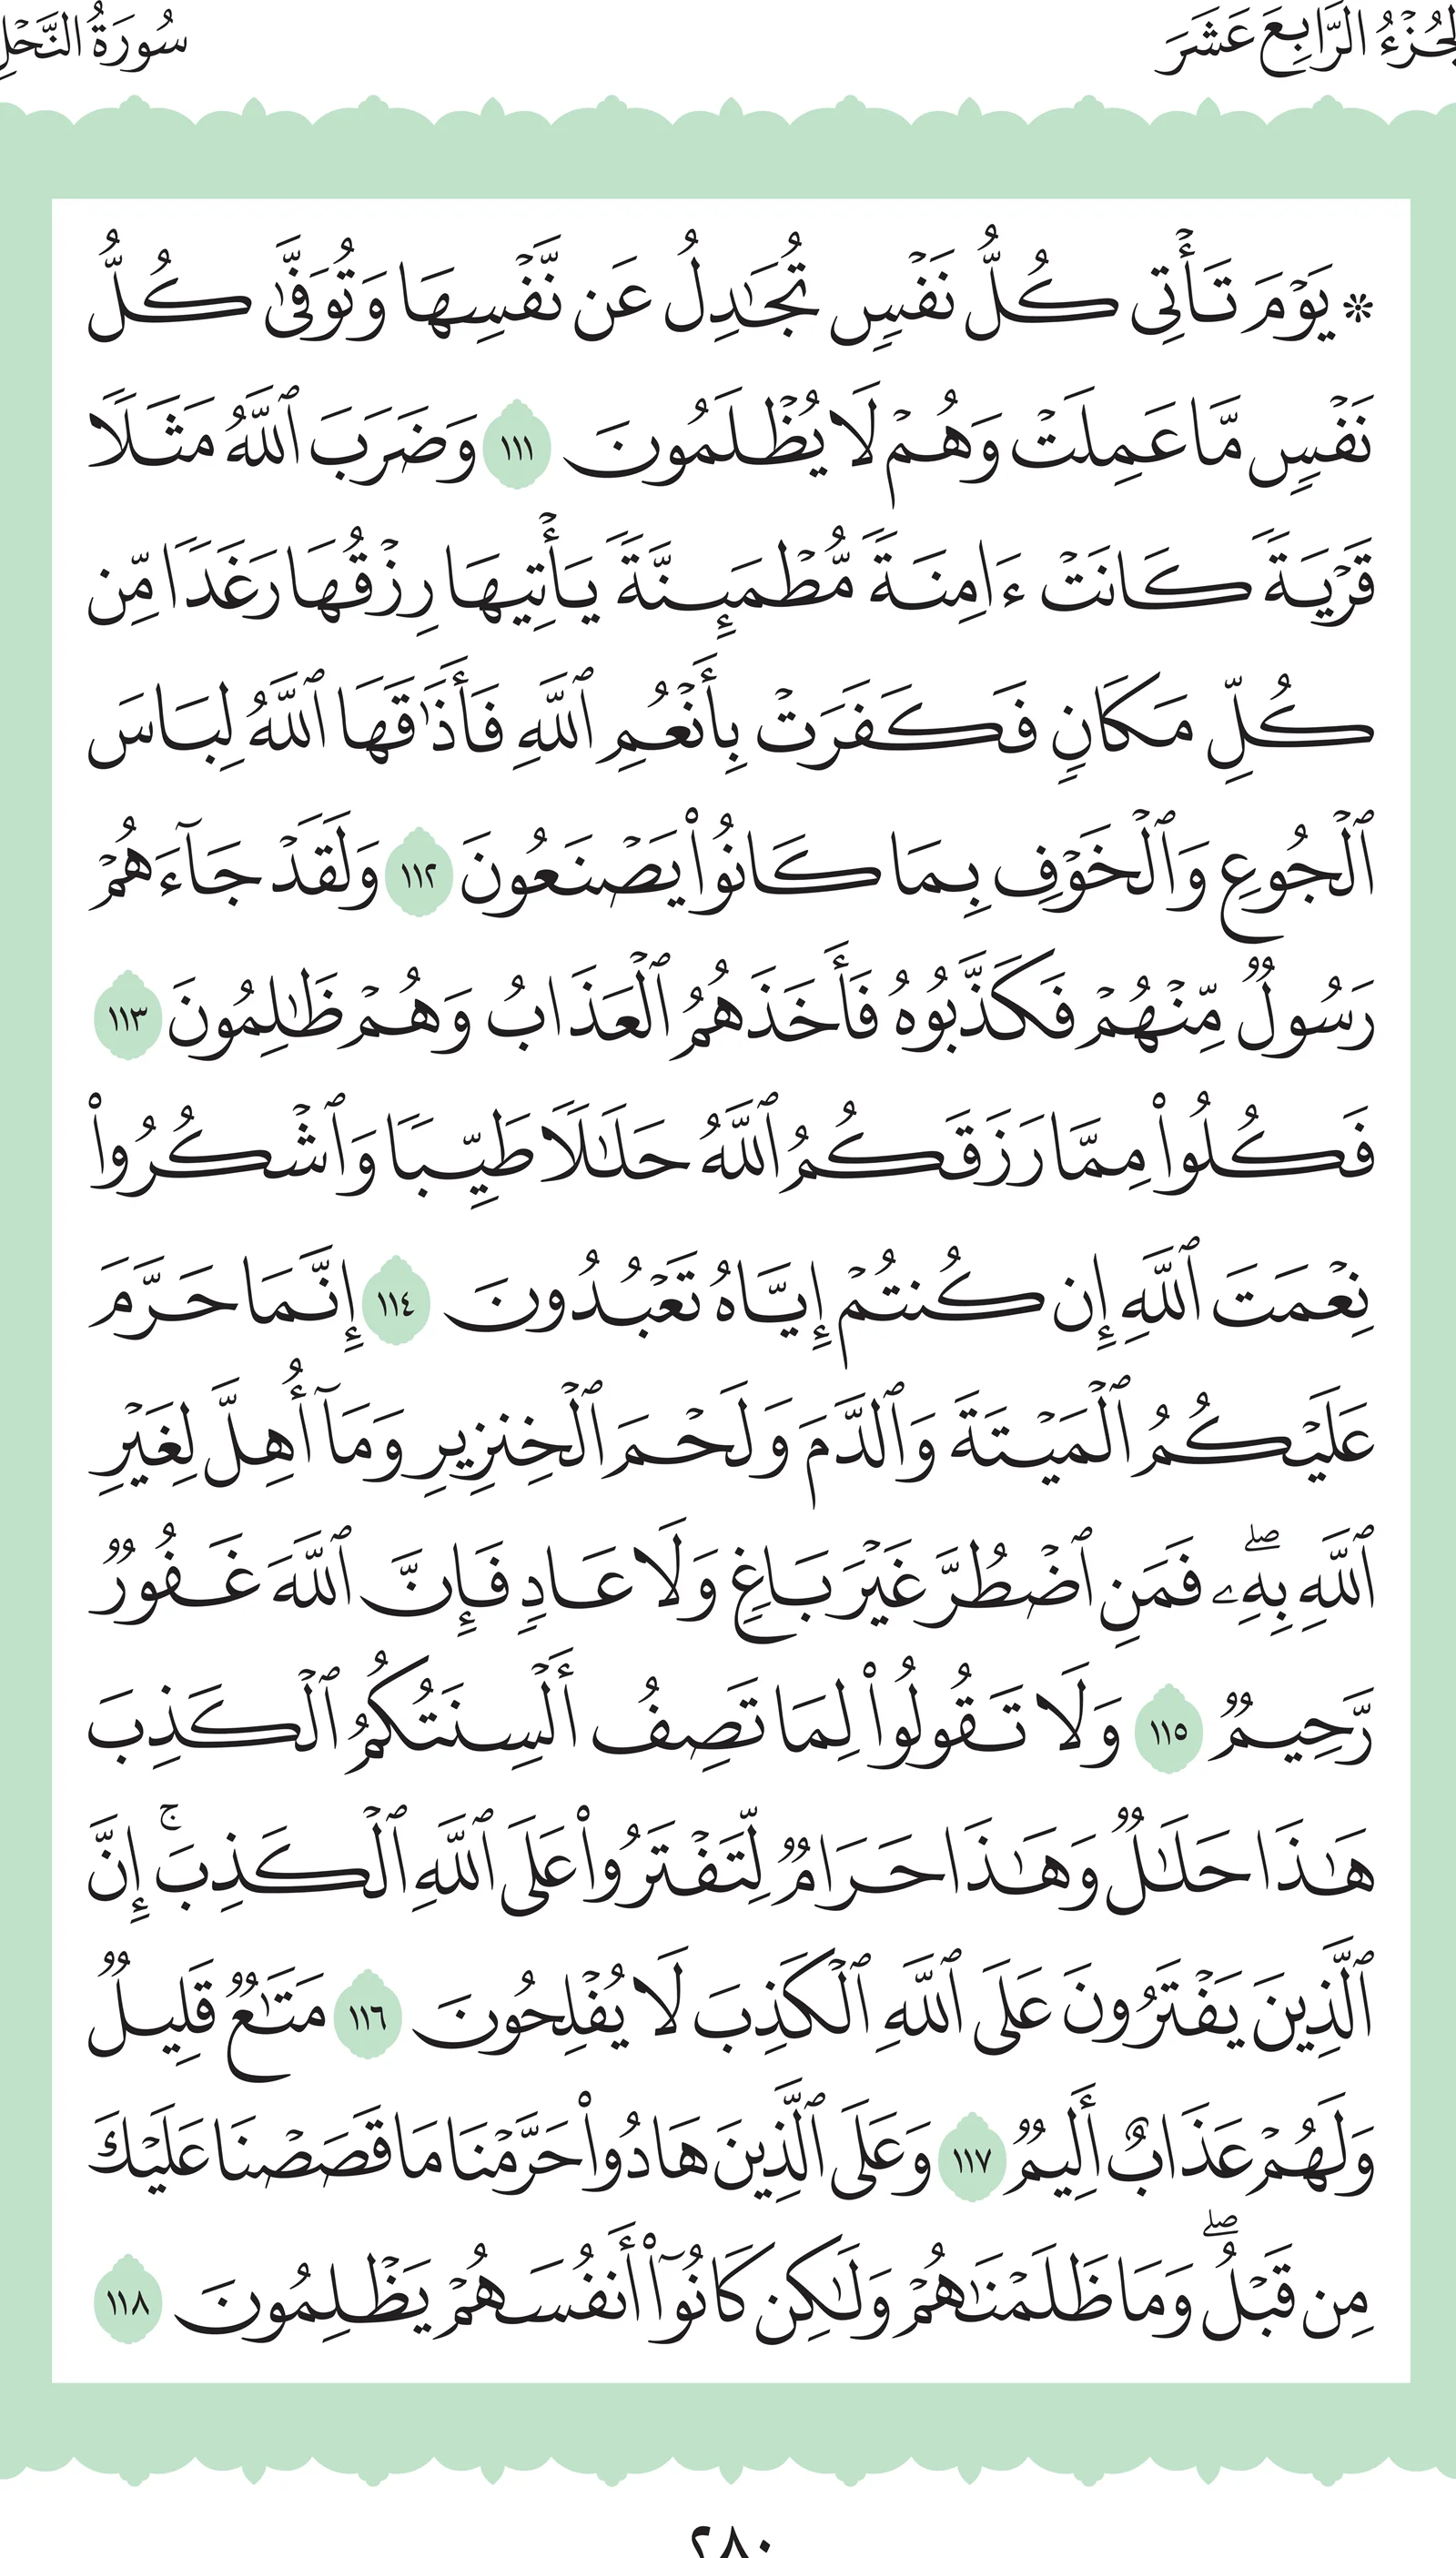 الجُزْءُ الرَّابِعَ عَشَرَ
سُورَةُ النَّحْلِ
۞ يَوۡمَ تَأۡتِي كُلُّ نَفۡسٖ تُجَٰدِلُ عَن نَّفۡسِهَا وَتُوَفَّىٰ كُلُّ
نَفۡسٖ مَّا عَمِلَتۡ وَهُمۡ لَا يُظۡلَمُونَ ١١١ وَضَرَبَ ٱللَّهُ مَثَلٗا
قَرۡيَةٗ كَانَتۡ ءَامِنَةٗ مُّطۡمَئِنَّةٗ يَأۡتِيهَا رِزۡقُهَا رَغَدٗا مِّن
كُلِّ مَكَانٖ فَكَفَرَتۡ بِأَنۡعُمِ ٱللَّهِ فَأَذَٰقَهَا ٱللَّهُ لِبَاسَ
ٱلۡجُوعِ وَٱلۡخَوۡفِ بِمَا كَانُواْ يَصۡنَعُونَ ١١٢ وَلَقَدۡ جَآءَهُمۡ
رَسُولٞ مِّنۡهُمۡ فَكَذَّبُوهُ فَأَخَذَهُمُ ٱلۡعَذَابُ وَهُمۡ ظَٰلِمُونَ ١١٣
فَكُلُواْ مِمَّا رَزَقَكُمُ ٱللَّهُ حَلَٰلٗا طَيِّبٗا وَٱشۡكُرُواْ
نِعۡمَتَ ٱللَّهِ إِن كُنتُمۡ إِيَّاهُ تَعۡبُدُونَ ١١٤ إِنَّمَا حَرَّمَ
عَلَيۡكُمُ ٱلۡمَيۡتَةَ وَٱلدَّمَ وَلَحۡمَ ٱلۡخِنزِيرِ وَمَآ أُهِلَّ لِغَيۡرِ
ٱللَّهِ بِهِۦۖ فَمَنِ ٱضۡطُرَّ غَيۡرَ بَاغٖ وَلَا عَادٖ فَإِنَّ ٱللَّهَ غَفُورٞ
رَّحِيمٞ ١١٥ وَلَا تَقُولُواْ لِمَا تَصِفُ أَلۡسِنَتُكُمُ ٱلۡكَذِبَ
هَٰذَا حَلَٰلٞ وَهَٰذَا حَرَامٞ لِّتَفۡتَرُواْ عَلَى ٱللَّهِ ٱلۡكَذِبَۚ إِنَّ
ٱلَّذِينَ يَفۡتَرُونَ عَلَى ٱللَّهِ ٱلۡكَذِبَ لَا يُفۡلِحُونَ ١١٦ مَتَٰعٞ قَلِيلٞ
وَلَهُمۡ عَذَابٌ أَلِيمٞ ١١٧ وَعَلَى ٱلَّذِينَ هَادُواْ حَرَّمۡنَا مَا قَصَصۡنَا عَلَيۡكَ
مِن قَبۡلُۖ وَمَا ظَلَمۡنَٰهُمۡ وَلَٰكِن كَانُوٓاْ أَنفُسَهُمۡ يَظۡلِمُونَ ١١٨
٢٨٠